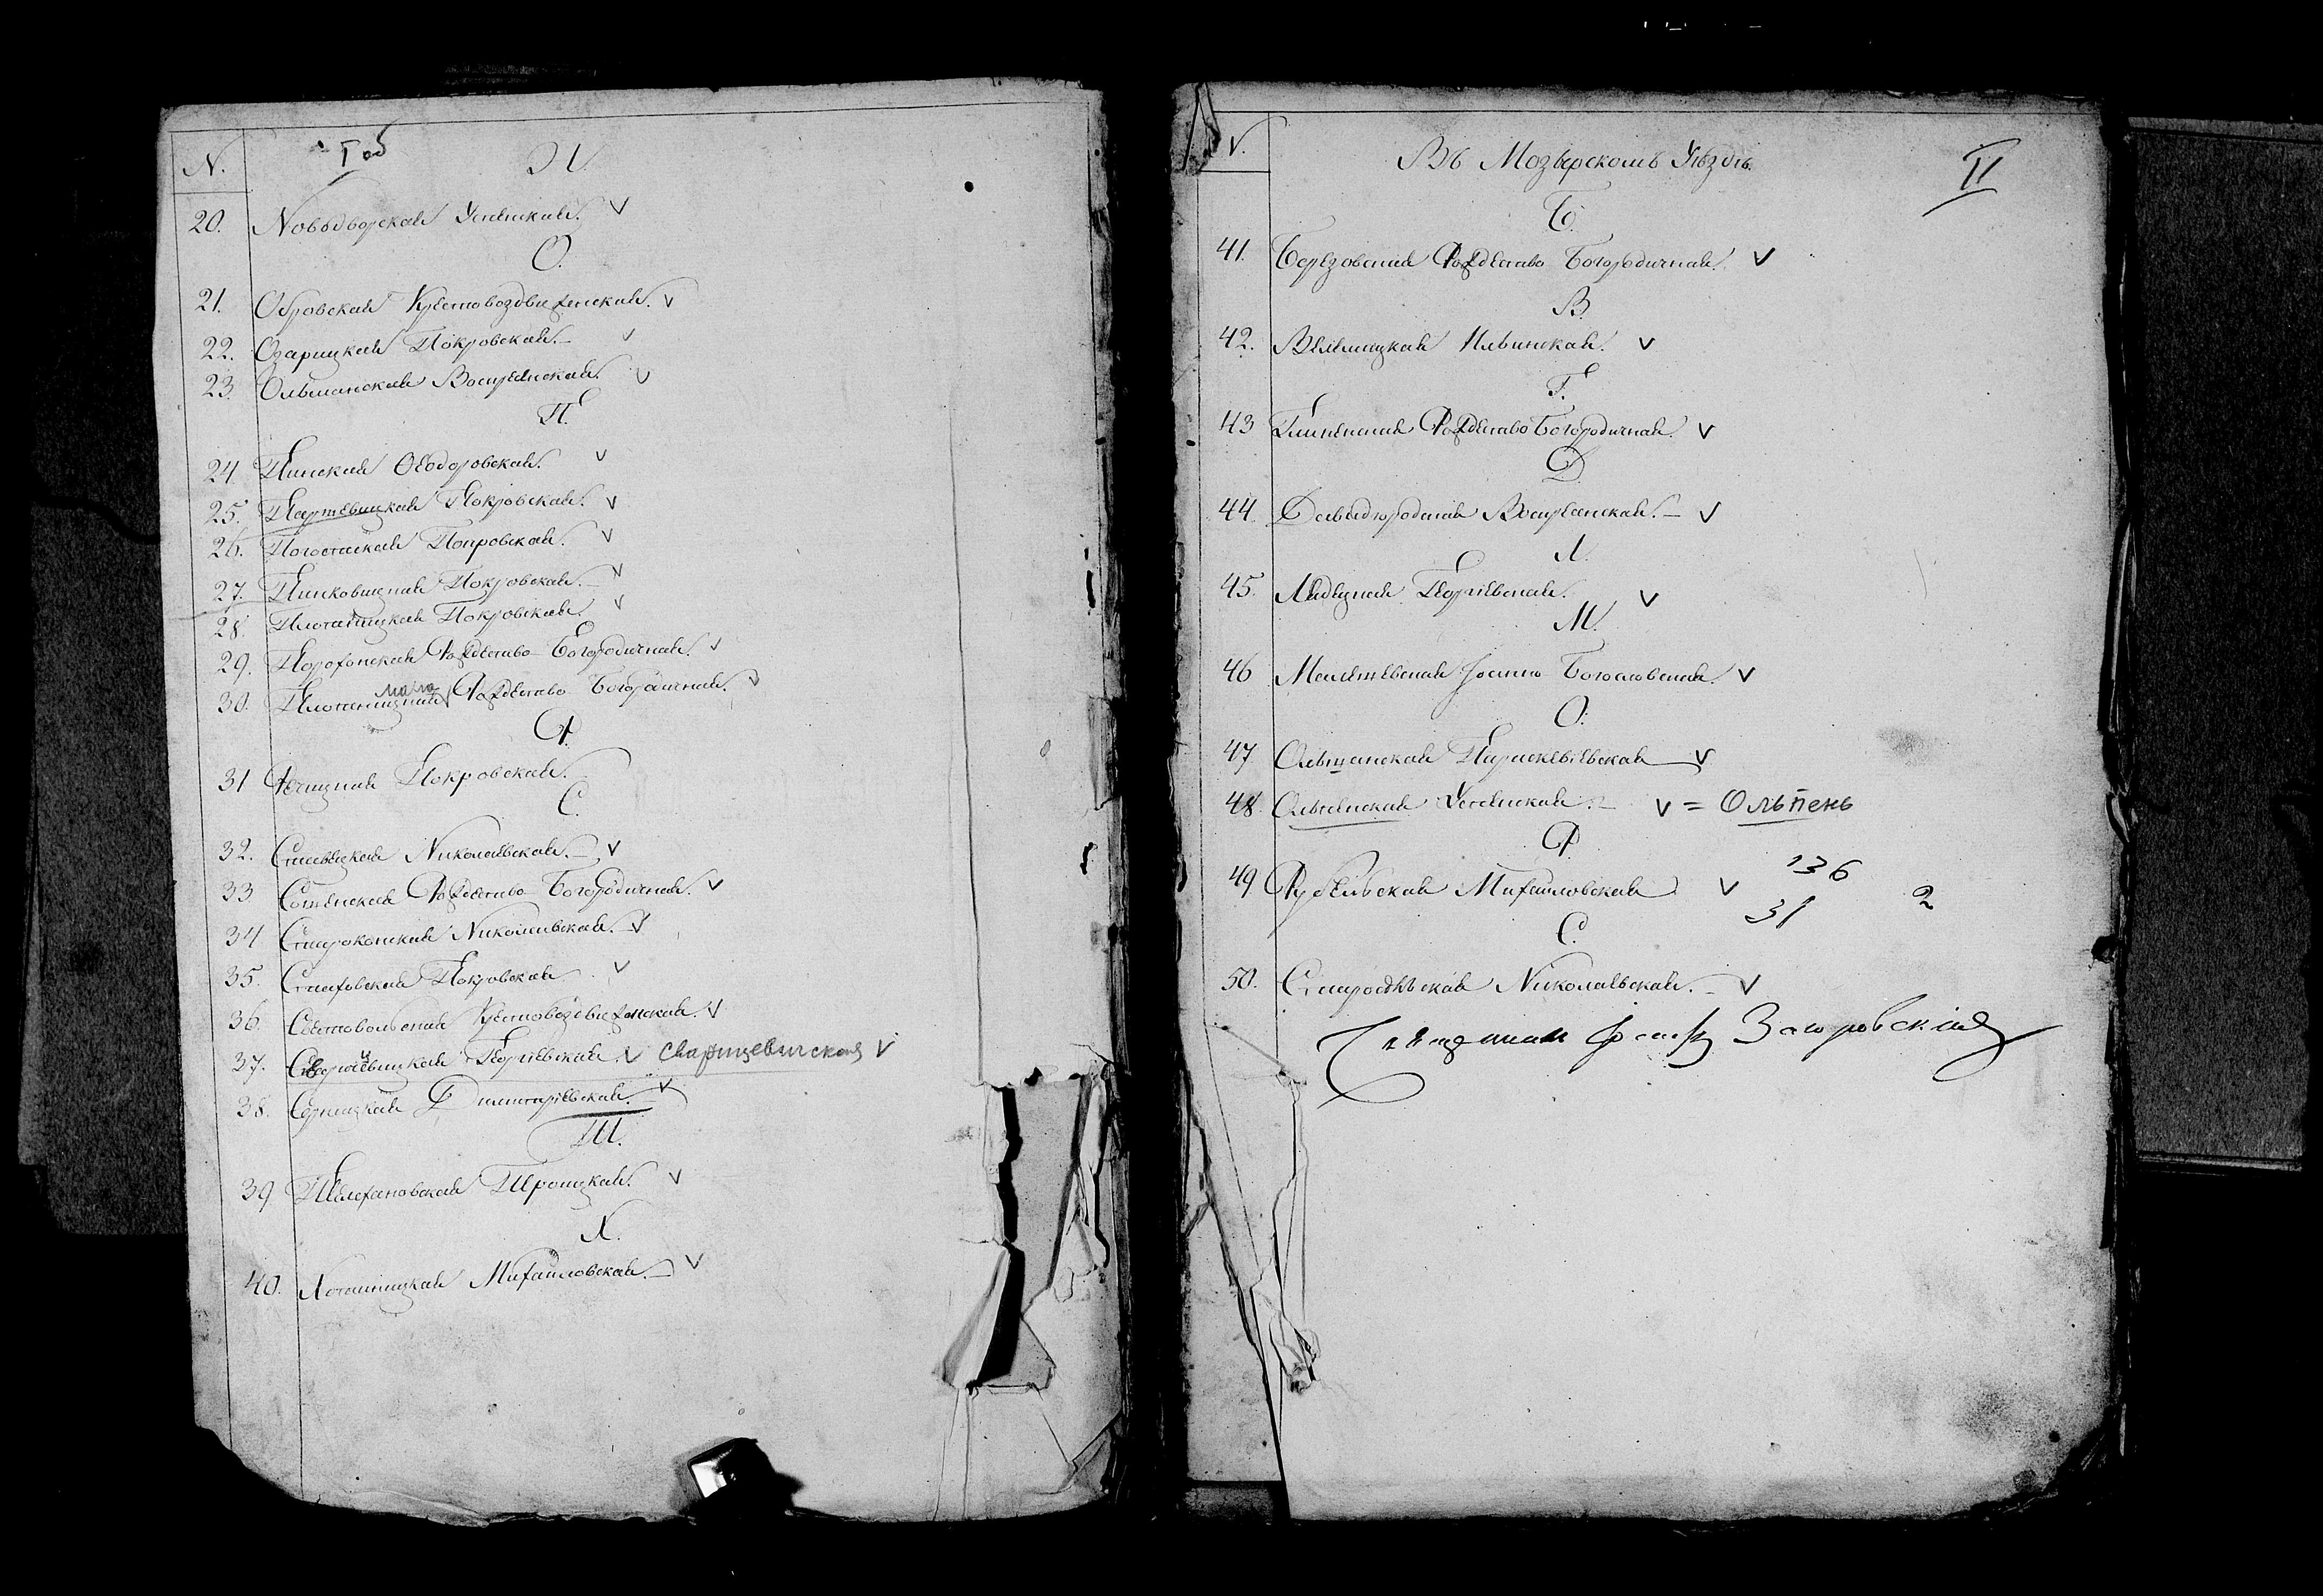 N. Год Н.
20. Новодворская Успенская. V
О.
21. Обровская Крестовоздвиженская. V
22. Озарицкая Покровская. V
23. Ольшанская Воскресенская. V
П.
24 Пинская Феодоровская. V
25. Партевицкая Покровская. V
26. Погостская Покровская. V
27. Пинковицкая Покровская. V
28. Плотницкая Покровская. V
29. Порохонская Рождество-Богородичная. V
30. Плотницкая мала Рождество-Богородичная. V
Р.
31 Речицкая Покровская.
С.
32. Ставецкая Николаевская. V
33 Сошенская Рождество-Богородичная. V
34 Староконская Николаевская. V
35. Стаховская Покровская V
36. Святовольская Крестовоздвиженская. V
37. Сварицевицкая Георгиевская. V Сварицевичская V
38. Серницкая Димитриевская. V
Т.
39 Телехановская Троицкая. V
Х.
40. Хотыницкая Михайловская. V
N. Въ Мозырскомъ Уѣздѣ. II
Б.
41. Березовская Рождество Богородичная. V
В.
42. Велемицкая Ильинская. V
Г.
43 Глинская Рождество Богородичная. V
Д
44. Давыдгородская Воскресенская. V
Л.
45. Лядецкая Георгиевская. V
М.
46 Мелетевская Іоанно Богословская. V
О.
47 Ольшанская Параскевіевская V
48. Ольпенская Успенская. V = Ольпень
Р.
49 Рубельская Михайловская V 136
31 2
С.
50. Старосельская Николаевская. V
Священник Загоровскій